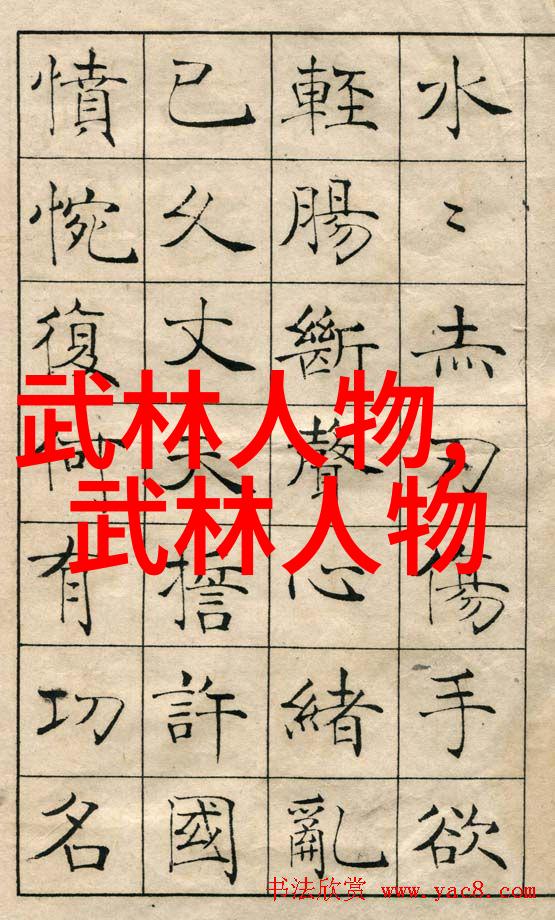 水〻赤刃傷手欲
輕腸斷聲心緒亂
已久丈夫誓許國
憤惋復何有功名
武林人物,
武林人物
书法欣赏 www.yac8.com